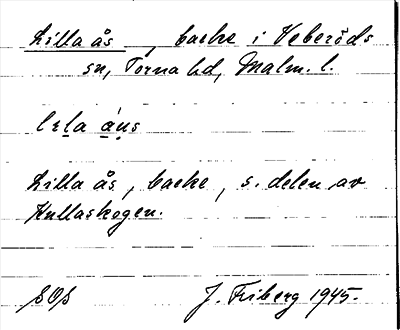 Lilla ås, backe i Veberöds
sn, Torna hd, Malm. l.
Lilla ås, backe, s. delen av
Kullaskogen.
SOS J. Friberg 1945.